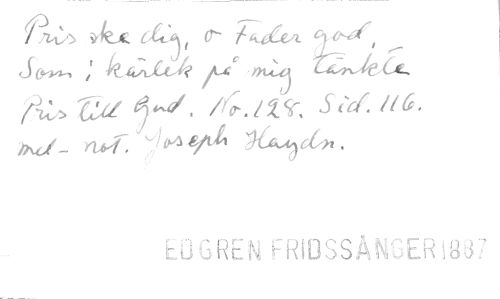 Pris ske dig, o Fader god,
Som i kärlek på mig tänkte
Pris till Gud. No. 128. Sid. 116.
mel- not. Joseph Haydn.
EDGREN FRIDSSÅNGER 1887